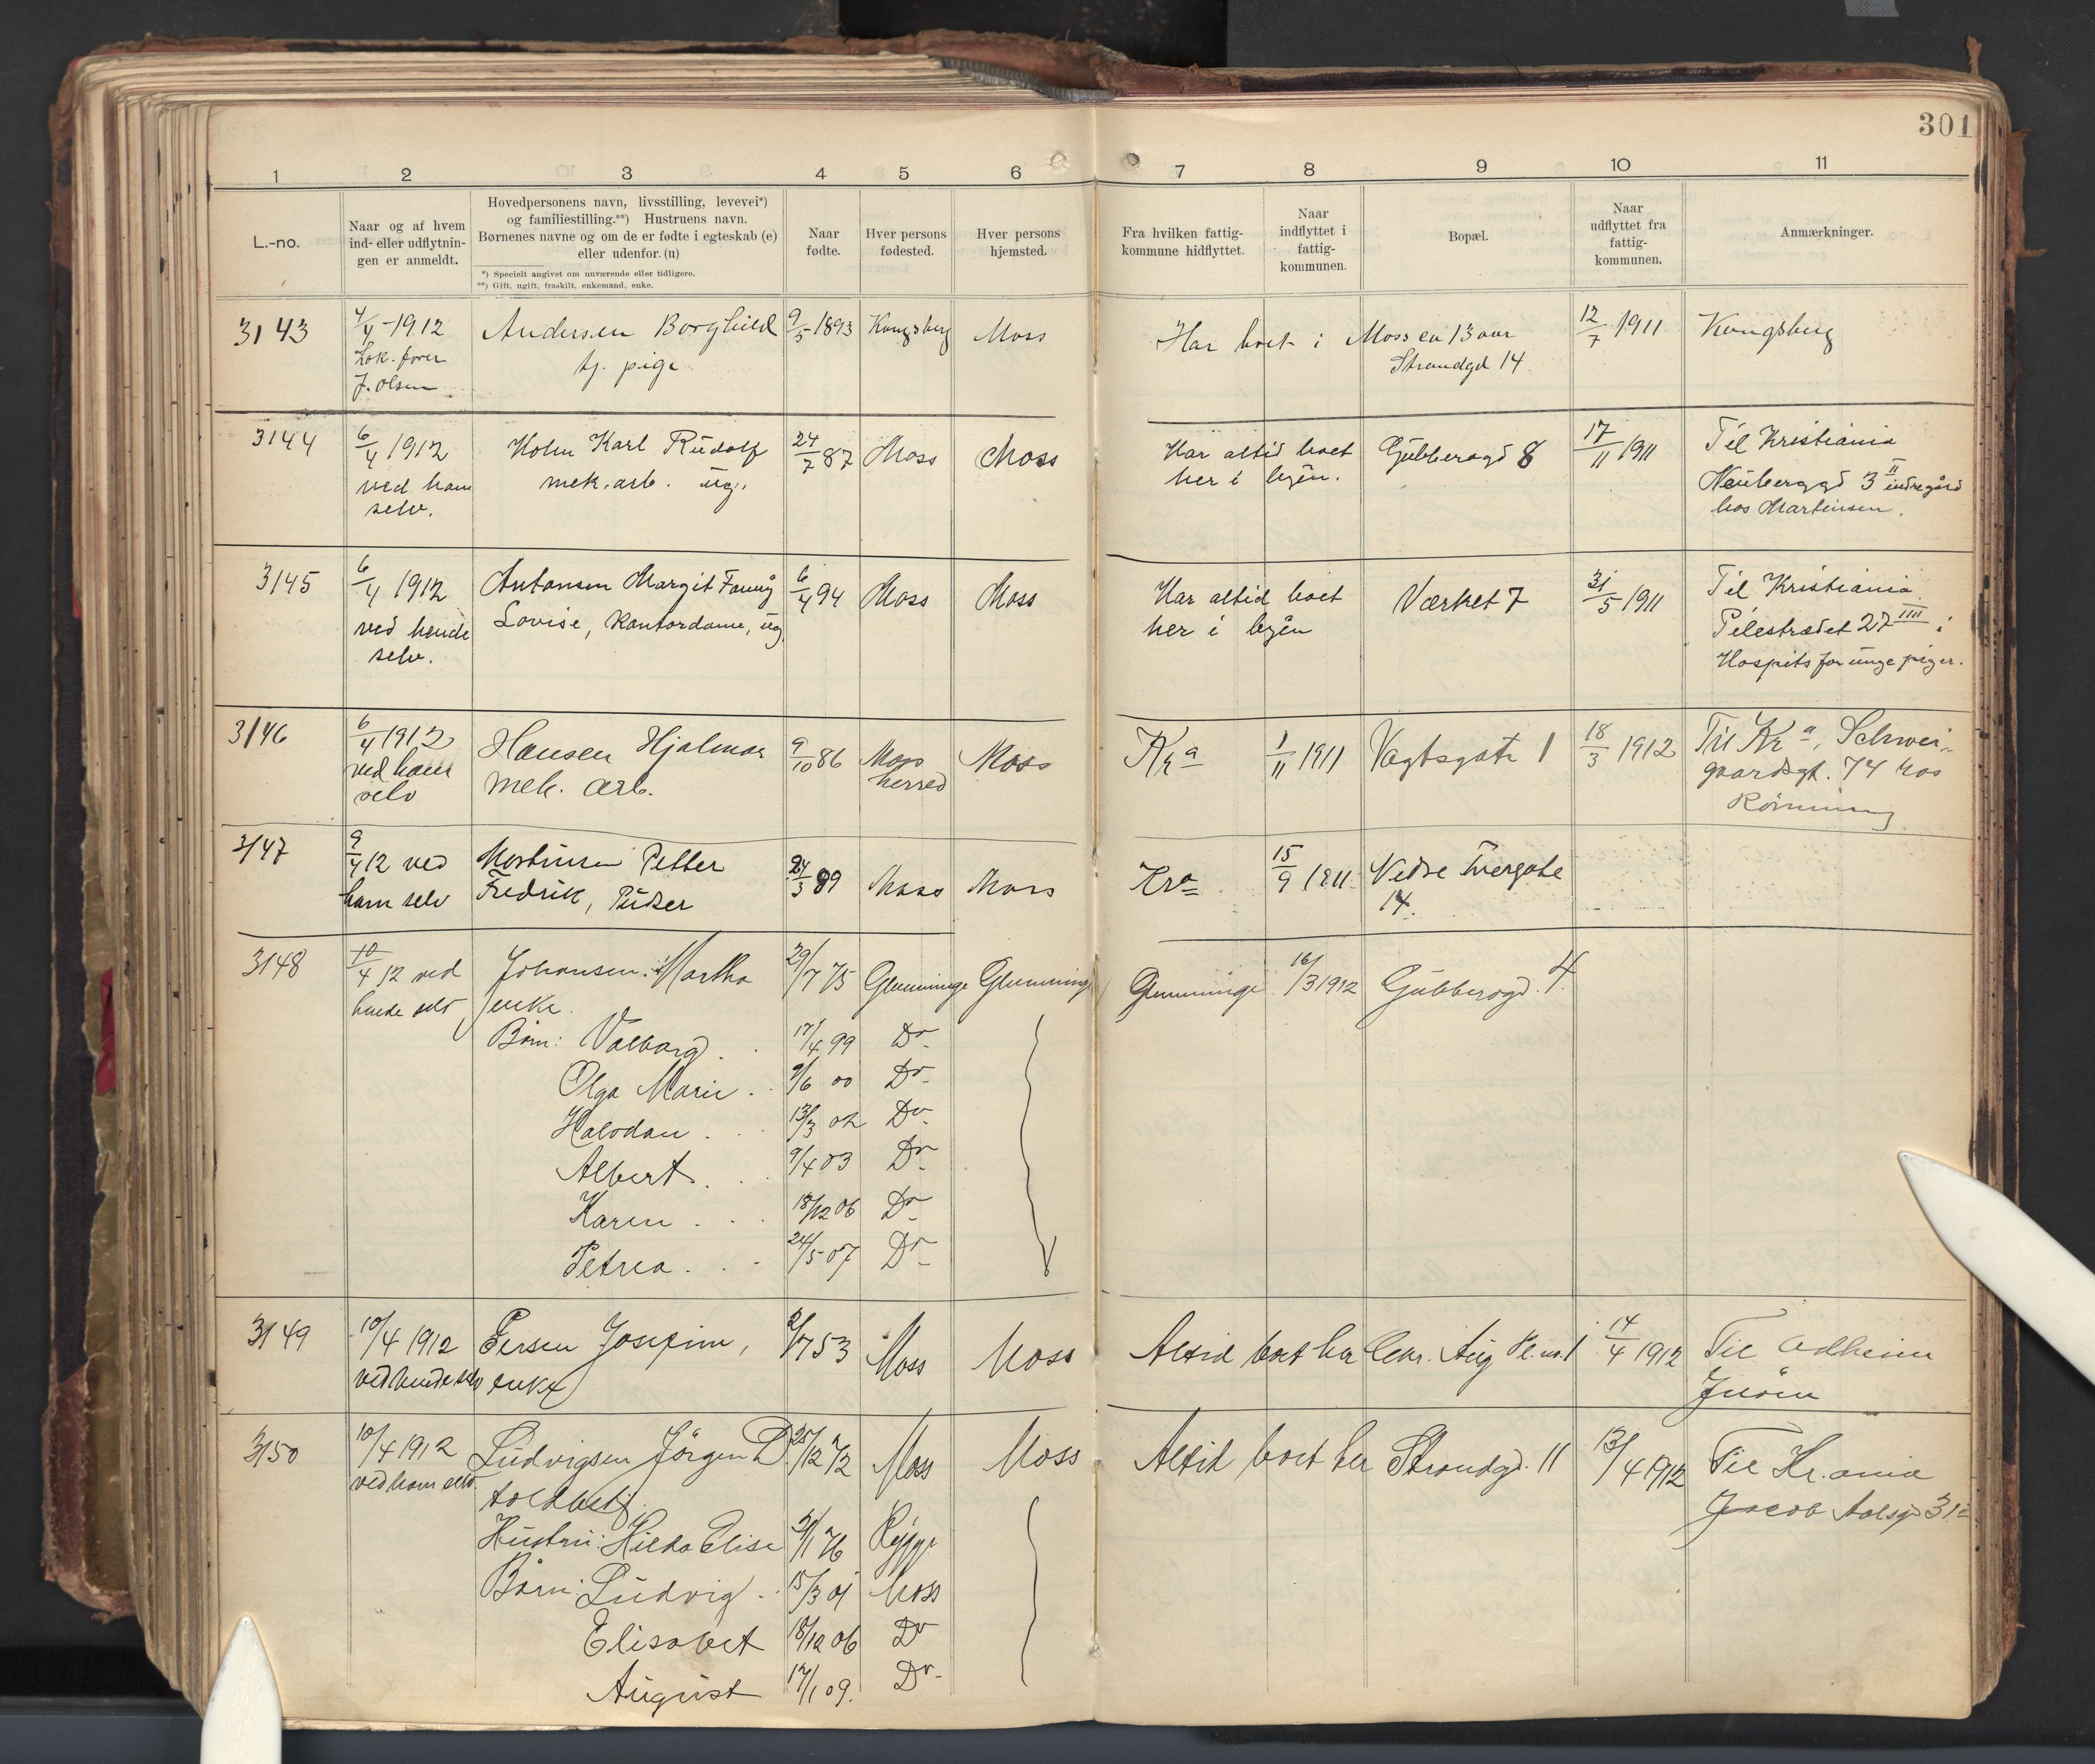 301
1 2 3 4 5 6 7 8 9 10 11
L.-no.
Naar og af hvem
ind- eller udflytnin-
gen er anmeldt.
Hovedpersonens navn, livsstilling, levevei*)
og familiestilling.**) Hustruens navn.
Børnenes navne og om de er fødte i egteskab (e)
eller udenfor. (u)
*) Specielt angivet om nuværende eller tidligere.
**) Gift, ugift, fraskilt, enkemand, enke.
Naar
fødte.
Hver persons
fødested.
Hver persons
hjemsted.
Fra hvilken fattig-
kommune hidflyttet.
Naar
indflyttet i
fattig-
kommunen.
Bopæl.
Naar
udflyttet fra
fattig-
kommunen.
Anmærkninger.
3143
4/4-1912
Lok. fører
J. Olsen
Andersen Borghild
tj. pige
9/5-1893
Kongsberg
Moss
Har boet i Moss ca 13 aar
Strandgd 14
12/7 1911
Kongsberg
3144
6/4 1912
ved ham
selv.
Holm Karl Rudolf
mek. arb. ug.
24/7 87
Moss
Moss
Har altid boet
her i byen.
Gubberogd 8
17/11 1911
Til Kristiania
Neuberggd 3 II indregård
hos Martinsen.
3145
6/4 1912
ved hende
selv.
Antonsen Margit Fanny
Lovise, Kontordame, ug.
6/4 94
Moss
Moss
Har altid boet
her i byen
Værket 7
31/5 1911
Til Kristiania
Pilestrædet 27 IIII i
Hospits for unge piger.
3146
6/4 1912
ved ham
selv
Hansen Hjalmar
mek. arb.
9/10 86
Moss
herred
Moss
Kra
1/11 1911
Vogtsgate 1
18/3 1912
Til Kra, Schwei-
gaardsgt. 74 hos
Rønning
3147
9/4 12 ved
ham selv
Martinsen Petter
Fredrik, Pudser
24/3 89
Moss
Moss
Kra
15/9 1911
Vedre Tvergate
14.
3148
10/4 12 ved
hende selv
Johansen Martha
enke.
29/7 75
Glemminge
Glemminge
Glemminge
16/3 1912
Gubberogd. 4.
Børn: Valborg. 17/4 99 Do
Olga Marie. 9/6 00 Do
Halvdan. 13/3 02 Do
Albert. 9/4 03 Do
Karen 18/12 06 Do
Petrea. 24/5 07 Do
3149
10/4 1912
ved hende selv
Persen Josefine,
enke
2/7 53
Moss
Moss
Altid boet her
Chr. Aug Pl. no. 1
14/4 1912
Til Adheim
Jeløen
3150
10/4 1912
ved ham selv.
Ludvigsen Jørgen D.
toldbetj.
25/12 72
Moss
Moss
Altid boet her
Strandgd. 11
13/4 1912
Til Kr.ania
Jacob Aalsgd 31
Hustru: Hilda Elise 21/1 76 Rygge
Børn: Ludvig. 15/3 01 Moss
Elisabet 18/12 06 Do
August 17/1 09. Do